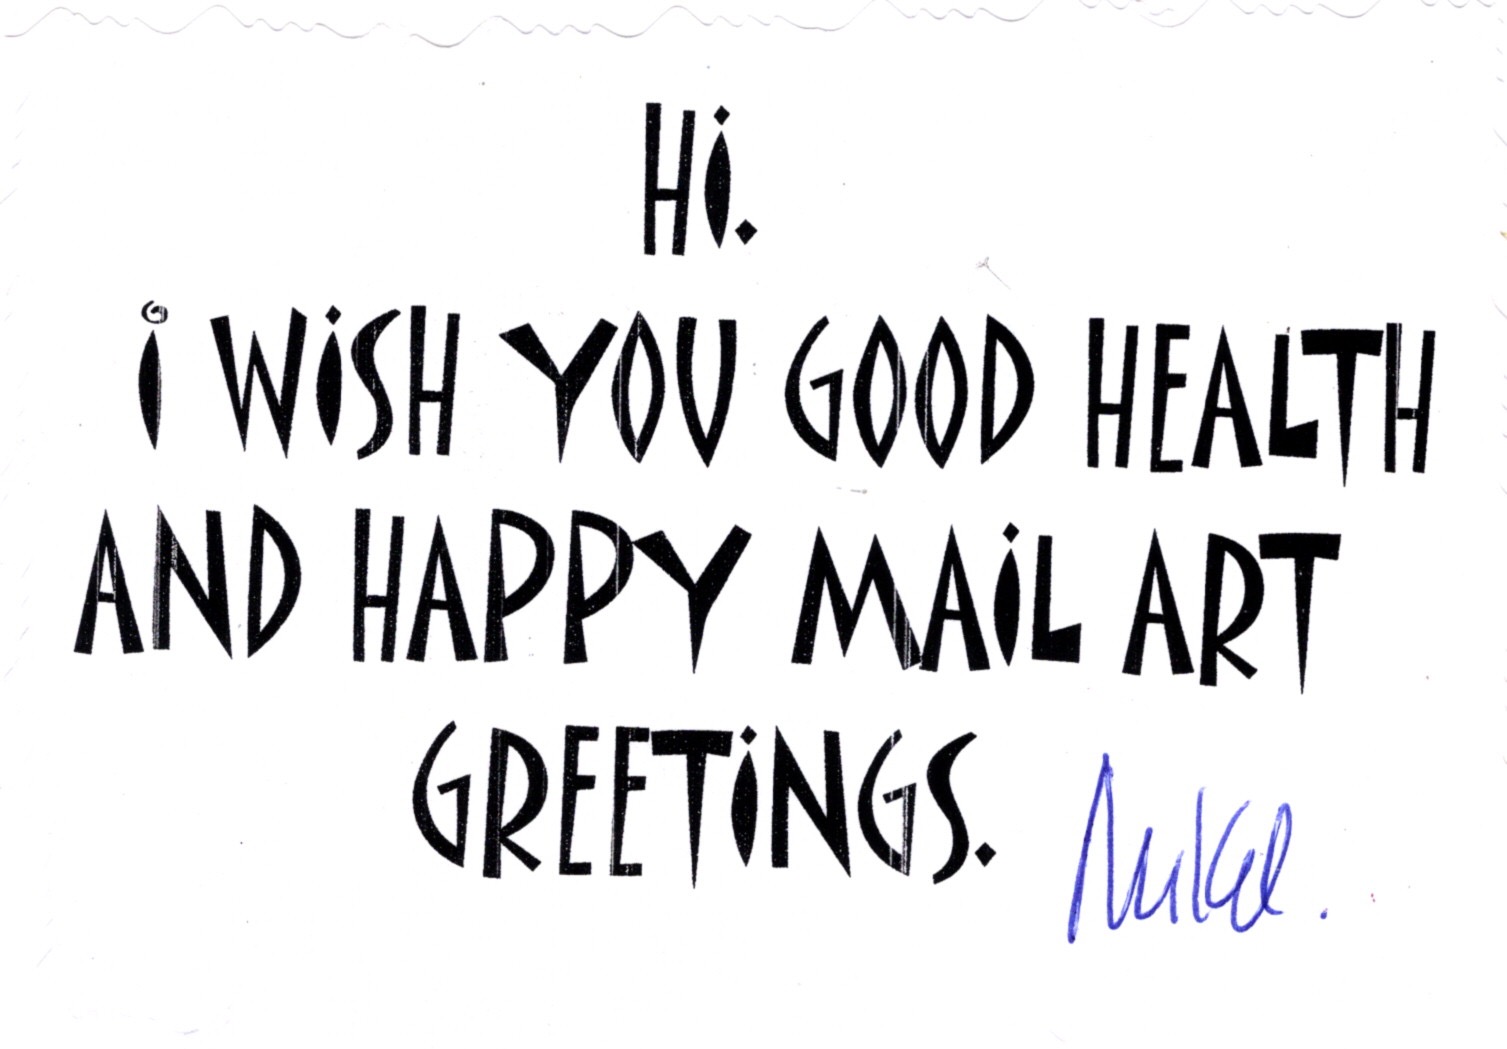 Hi.
i WiSH YOU GOOD HEALTH
AND HAPPY MAiL ART
GREETiNGS.